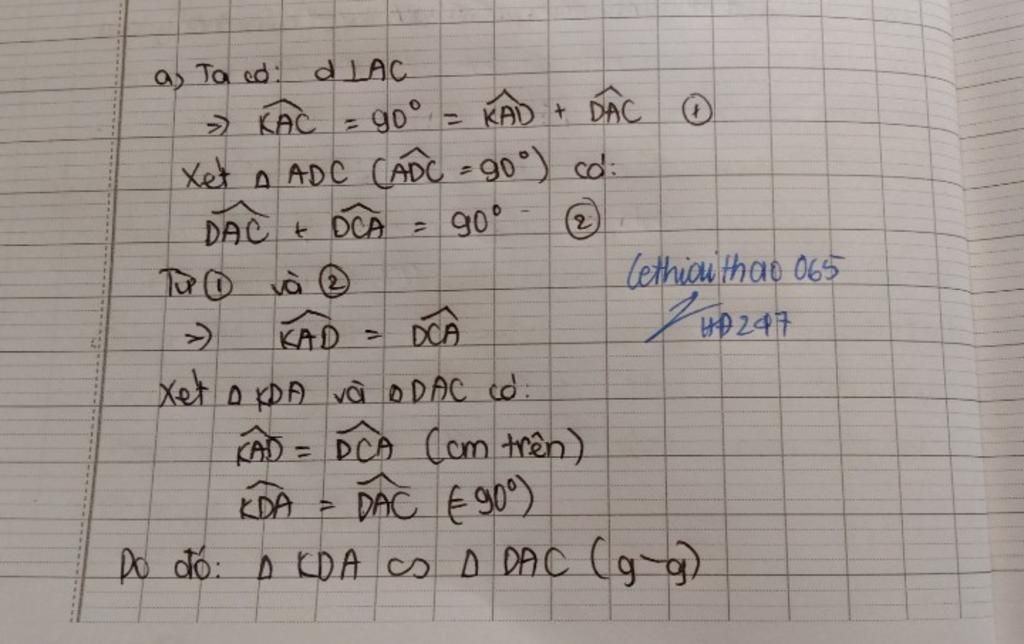 a) Ta có: d ⊥ AC
=> \widehat{KAC} = 90° = \widehat{KAD} + \widehat{DAC} ①
Xét Δ ADC (\widehat{ADC} = 90°) có:
\widehat{DAC} + \widehat{DCA} = 90° ②
Từ ① và ②
=> \widehat{KAD} = \widehat{DCA}
lethiaithao 065
HD247
Xét Δ KDA và Δ DAC có:
\widehat{KAD} = \widehat{DCA} (cm trên)
\widehat{KDA} = \widehat{DAC} (=90°)
Do đó: Δ KDA ∽ Δ DAC (g-g)